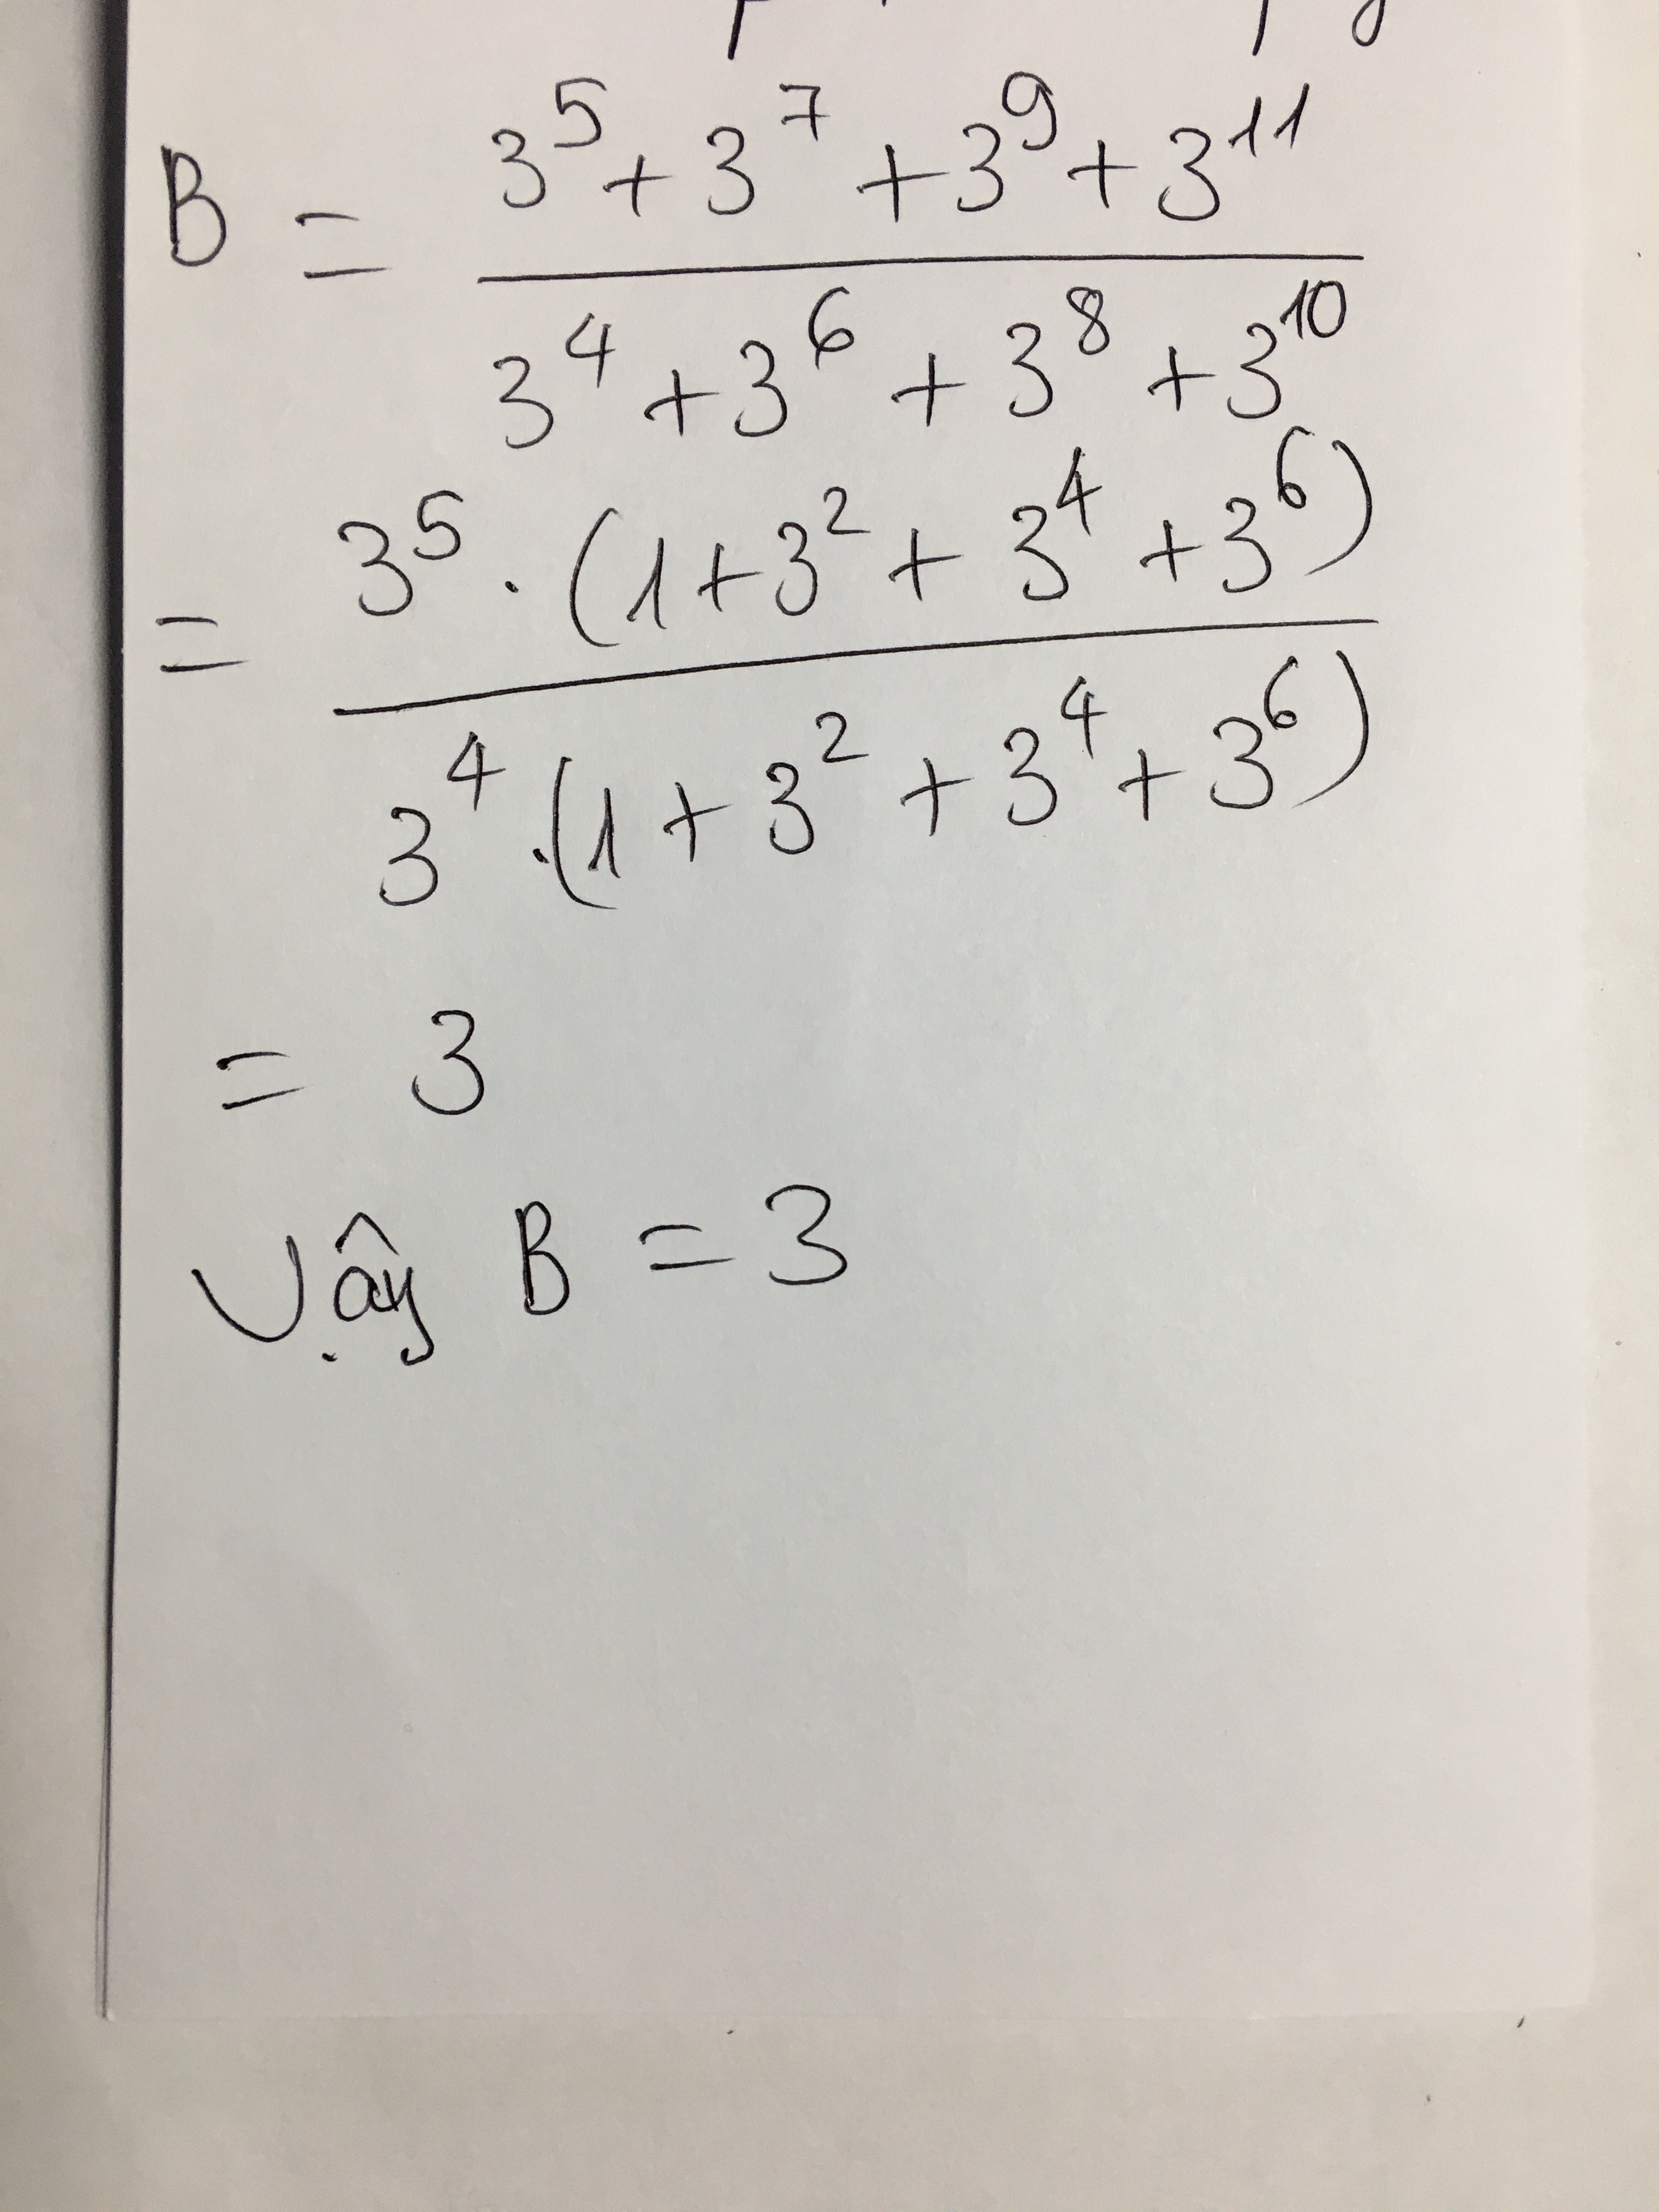 B = (3⁵ + 3⁷ + 3⁹ + 3¹¹) / (3⁴ + 3⁶ + 3⁸ + 3¹⁰)
= 3⁵ . (1 + 3² + 3⁴ + 3⁶) / 3⁴ . (1 + 3² + 3⁴ + 3⁶)
= 3
Vậy B = 3